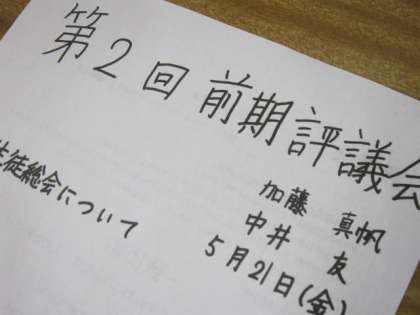 第2回 前期評議会
加藤 真帆
中井 友
5月21日(金)
生徒総会について